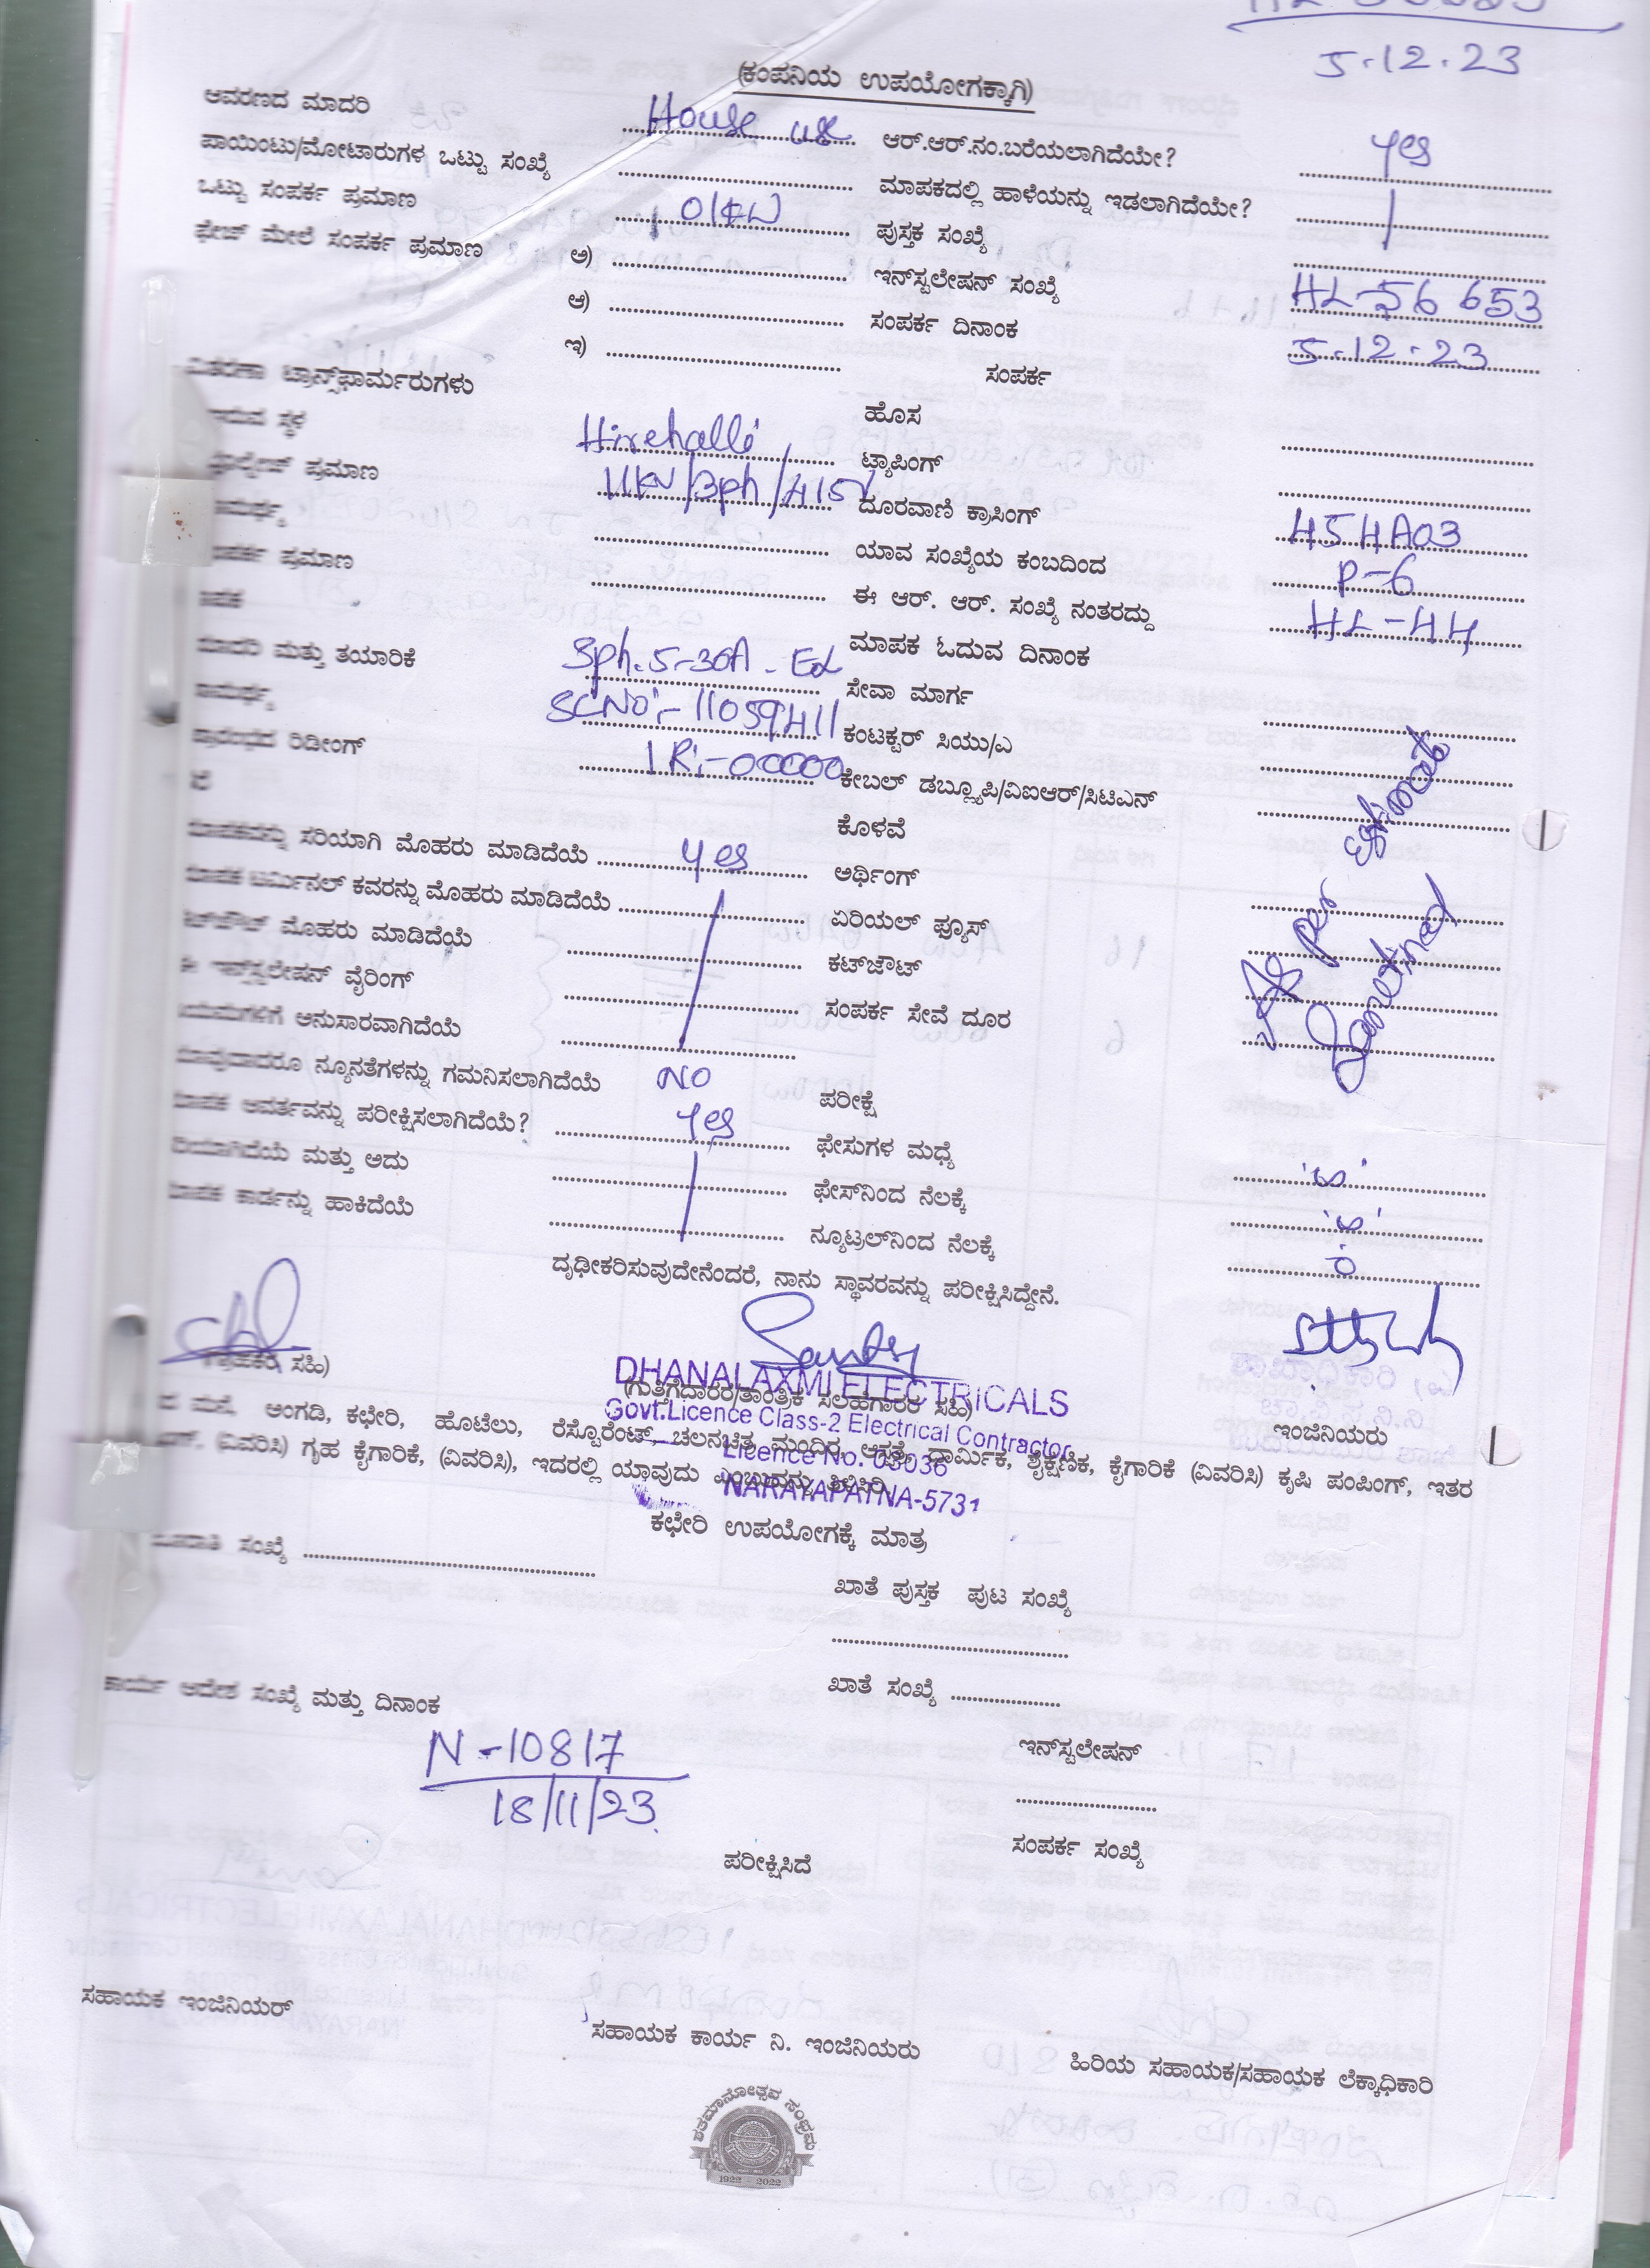 5.12.23
(ಕಂಪನಿಯ ಉಪಯೋಗಕ್ಕಾಗಿ)
ಆವರಣದ ಮಾದರಿ House use ಆರ್.ಆರ್.ನಂ.ಬರೆಯಲಾಗಿದೆಯೇ? yes
ಪಾಯಿಂಟು/ಮೋಟಾರುಗಳ ಒಟ್ಟು ಸಂಖ್ಯೆ ಮಾಪಕದಲ್ಲಿ ಹಾಳೆಯನ್ನು ಇಡಲಾಗಿದೆಯೇ?
ಒಟ್ಟು ಸಂಪರ್ಕ ಪ್ರಮಾಣ 01KW ಪುಸ್ತಕ ಸಂಖ್ಯೆ
ಫೇಜ್ ಮೇಲೆ ಸಂಪರ್ಕ ಪ್ರಮಾಣ ಅ) ಇನ್‌ಸ್ಟಲೇಷನ್ ಸಂಖ್ಯೆ HL-56653
ಆ) ಸಂಪರ್ಕ ದಿನಾಂಕ 5.12.23
ಇ) ಸಂಪರ್ಕ
ವಿತರಣಾ ಟ್ರಾನ್ಸ್‌ಫಾರ್ಮರುಗಳು ಹೊಸ
ಸ್ಥಳ Hirehalli ಟ್ಯಾಪಿಂಗ್
ಪ್ರಮಾಣ 11KV/3ph/415V ದೂರವಾಣಿ ಕ್ರಾಸಿಂಗ್ 454A03
ಯಾವ ಸಂಖ್ಯೆಯ ಕಂಬದಿಂದ P-6
ಪ್ರಮಾಣ ಈ ಆರ್. ಆರ್. ಸಂಖ್ಯೆ ನಂತರದ್ದು HL-44
ಮಾಪಕ ಓದುವ ದಿನಾಂಕ
ಮಾದರಿ ಮತ್ತು ತಯಾರಿಕೆ Sph.5-30A - ಸೇವಾ ಮಾರ್ಗ
SCNO:-11059411 ಕಂಟಕ್ಟರ್ ಸಿಯು/ಎ
ಪ್ರಾರಂಭದ ರಿಡೀಂಗ್ IR:-00000 ಕೇಬಲ್ ಡಬ್ಲ್ಯೂಪಿ/ವಿಐಆರ್/ಸಿಟಿಎನ್
As per estimate
Sanctined
ಕೊಳವೆ
ಮಾಪಕವನ್ನು ಸರಿಯಾಗಿ ಮೊಹರು ಮಾಡಿದೆಯೆ yes ಅರ್ಥಿಂಗ್
ಮಾಪಕ ಟರ್ಮಿನಲ್ ಕವರನ್ನು ಮೊಹರು ಮಾಡಿದೆಯೆ ಏರಿಯಲ್ ಫ್ಯೂಸ್
ಮೊಹರು ಮಾಡಿದೆಯೆ ಕಟ್‌ಜೌಟ್
ಈ ಇನ್‌ಸ್ಟಲೇಷನ್ ವೈರಿಂಗ್ ಸಂಪರ್ಕ ಸೇವೆ ದೂರ
ನಿಯಮಗಳಿಗೆ ಅನುಸಾರವಾಗಿದೆಯೆ
ಯಾವುದಾದರೂ ನ್ಯೂನತೆಗಳನ್ನು ಗಮನಿಸಲಾಗಿದೆಯೆ NO ಪರೀಕ್ಷೆ
ಮಾಪಕ ಆವರ್ತವನ್ನು ಪರೀಕ್ಷಿಸಲಾಗಿದೆಯೆ? yes ಫೇಸುಗಳ ಮಧ್ಯೆ
ಸರಿಯಾಗಿದೆಯೆ ಮತ್ತು ಅದು ಫೇಸ್‌ನಿಂದ ನೆಲಕ್ಕೆ
ಮಾಪಕ ಕಾರ್ಡನ್ನು ಹಾಕಿದೆಯೆ ನ್ಯೂಟ್ರಲ್‌ನಿಂದ ನೆಲಕ್ಕೆ
ದೃಢೀಕರಿಸುವುದೇನೆಂದರೆ, ನಾನು ಸ್ಥಾವರವನ್ನು ಪರೀಕ್ಷಿಸಿದ್ದೇನೆ.
(ಗ್ರಾಹಕರ ಸಹಿ) (ಗುತ್ತಿಗೆದಾರರ/ತಾಂತ್ರಿಕ ಸಲಹೆಗಾರರ ಸಹಿ) ಇಂಜಿನಿಯರು
DHANALAXMI ELECTRICALS
Govt.Licence Class-2 Electrical Contractor
Licence No. 03036
NARAYAPATNA-5731
ಮನೆ, ಅಂಗಡಿ, ಕಛೇರಿ, ಹೊಟೆಲು, ರೆಸ್ಟೊರೆಂಟ್, ಚಲನಚಿತ್ರ ಮಂದಿರ, ಆಸ್ಪತ್ರೆ, ಧಾರ್ಮಿಕ, ಶೈಕ್ಷಣಿಕ, ಕೈಗಾರಿಕೆ (ವಿವರಿಸಿ) ಕೃಷಿ ಪಂಪಿಂಗ್, ಇತರ
(ವಿವರಿಸಿ) ಗೃಹ ಕೈಗಾರಿಕೆ, (ವಿವರಿಸಿ), ಇದರಲ್ಲಿ ಯಾವುದು ಎಂಬುದನ್ನು ತಿಳಿಸಿರಿ
ಕಛೇರಿ ಉಪಯೋಗಕ್ಕೆ ಮಾತ್ರ
ಸಂಖ್ಯೆ
ಖಾತೆ ಪುಸ್ತಕ ಪುಟ ಸಂಖ್ಯೆ
ಖಾತೆ ಸಂಖ್ಯೆ
ಕಾರ್ಯ ಆದೇಶ ಸಂಖ್ಯೆ ಮತ್ತು ದಿನಾಂಕ
N-10817
18/11/23
ಇನ್‌ಸ್ಟಲೇಷನ್
ಸಂಪರ್ಕ ಸಂಖ್ಯೆ
ಪರೀಕ್ಷಿಸಿದೆ
ಸಹಾಯಕ ಇಂಜಿನಿಯರ್
ಸಹಾಯಕ ಕಾರ್ಯ ನಿ. ಇಂಜಿನಿಯರು
ಹಿರಿಯ ಸಹಾಯಕ/ಸಹಾಯಕ ಲೆಕ್ಕಾಧಿಕಾರಿ
ಶತಮಾನೋತ್ಸವ ಸಂಭ್ರಮ
1922 - 2022